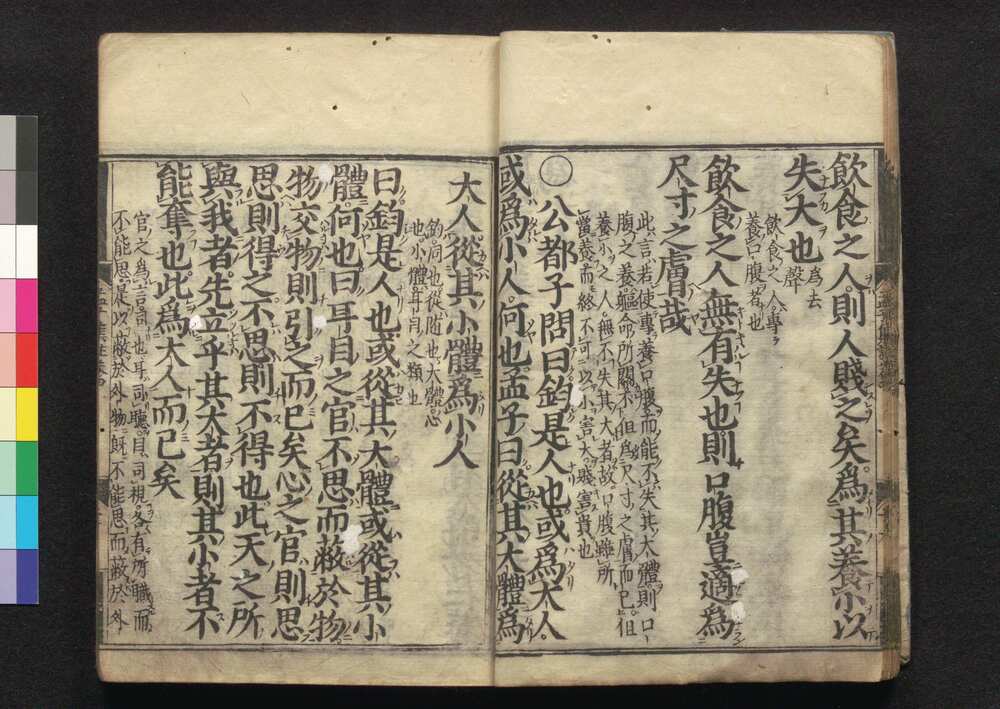 飲食之人則人賤之矣爲其養小以
失大也
爲去
聲
飲食之人專
養口腹者也
飲食之人無有失也則口腹豈適爲
尺寸之膚哉
此言若使專養口腹而能不失其大體則口
腹之養軀命所關不但爲尺寸之膚而已但
養小之人無不失其大者故口腹雖所
當養而終不可以小害大賤害貴也
○公都子問曰鈞是人也或爲大人
或爲小人何也孟子曰從其大體爲
大人從其小體爲小人
鈞同也從隨也大體心
也小體耳目之類也
曰鈞是人也或從其大體或從其小
體何也曰耳目之官不思而蔽於物
物交物則引之而已矣心之官則思
思則得之不思則不得也此天之所
與我者先立乎其大者則其小者不
能奪也此爲大人而已矣
官之爲言司也耳司聽目司視各有所職而
不能思是以蔽於外物旣不能思而蔽於外